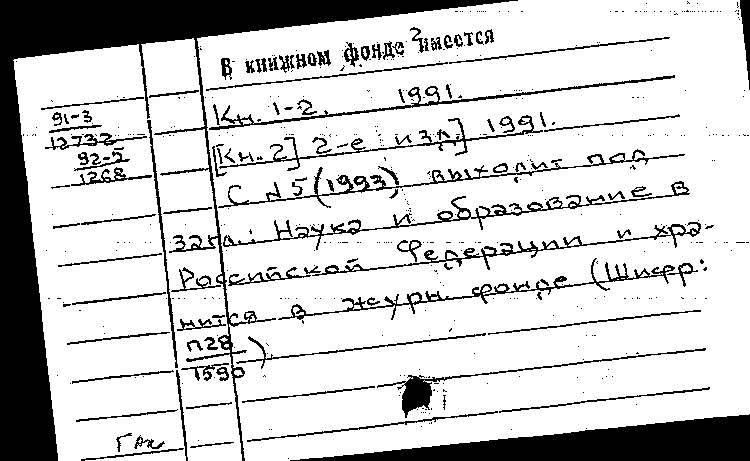 В книжном фонде 2 имеется
91-3
12732
Кн. 1-2. 1991.
92-5
1268
[Кн. 2] 2-е изд.] 1991.
С №5 (1993) выходит под
загл.: Наука и образование в
Российской Федерации и хра-
нится в журн. фонде (Шифр:
П28
1590 )